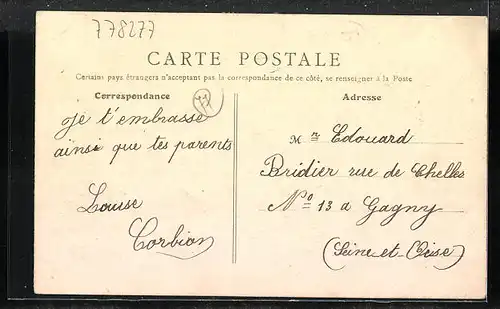 778277
CARTE POSTALE
Certains pays étrangers n'acceptant pas la correspondance de ce côté, se renseigner à la Poste
Correspondance
Je t'embrasse
ainsi que tes parents
Louise
Corbion
Adresse
Mr Edouard
Bridier rue de Chelles
No 13 a Gagny
(Seine-et-Oise)